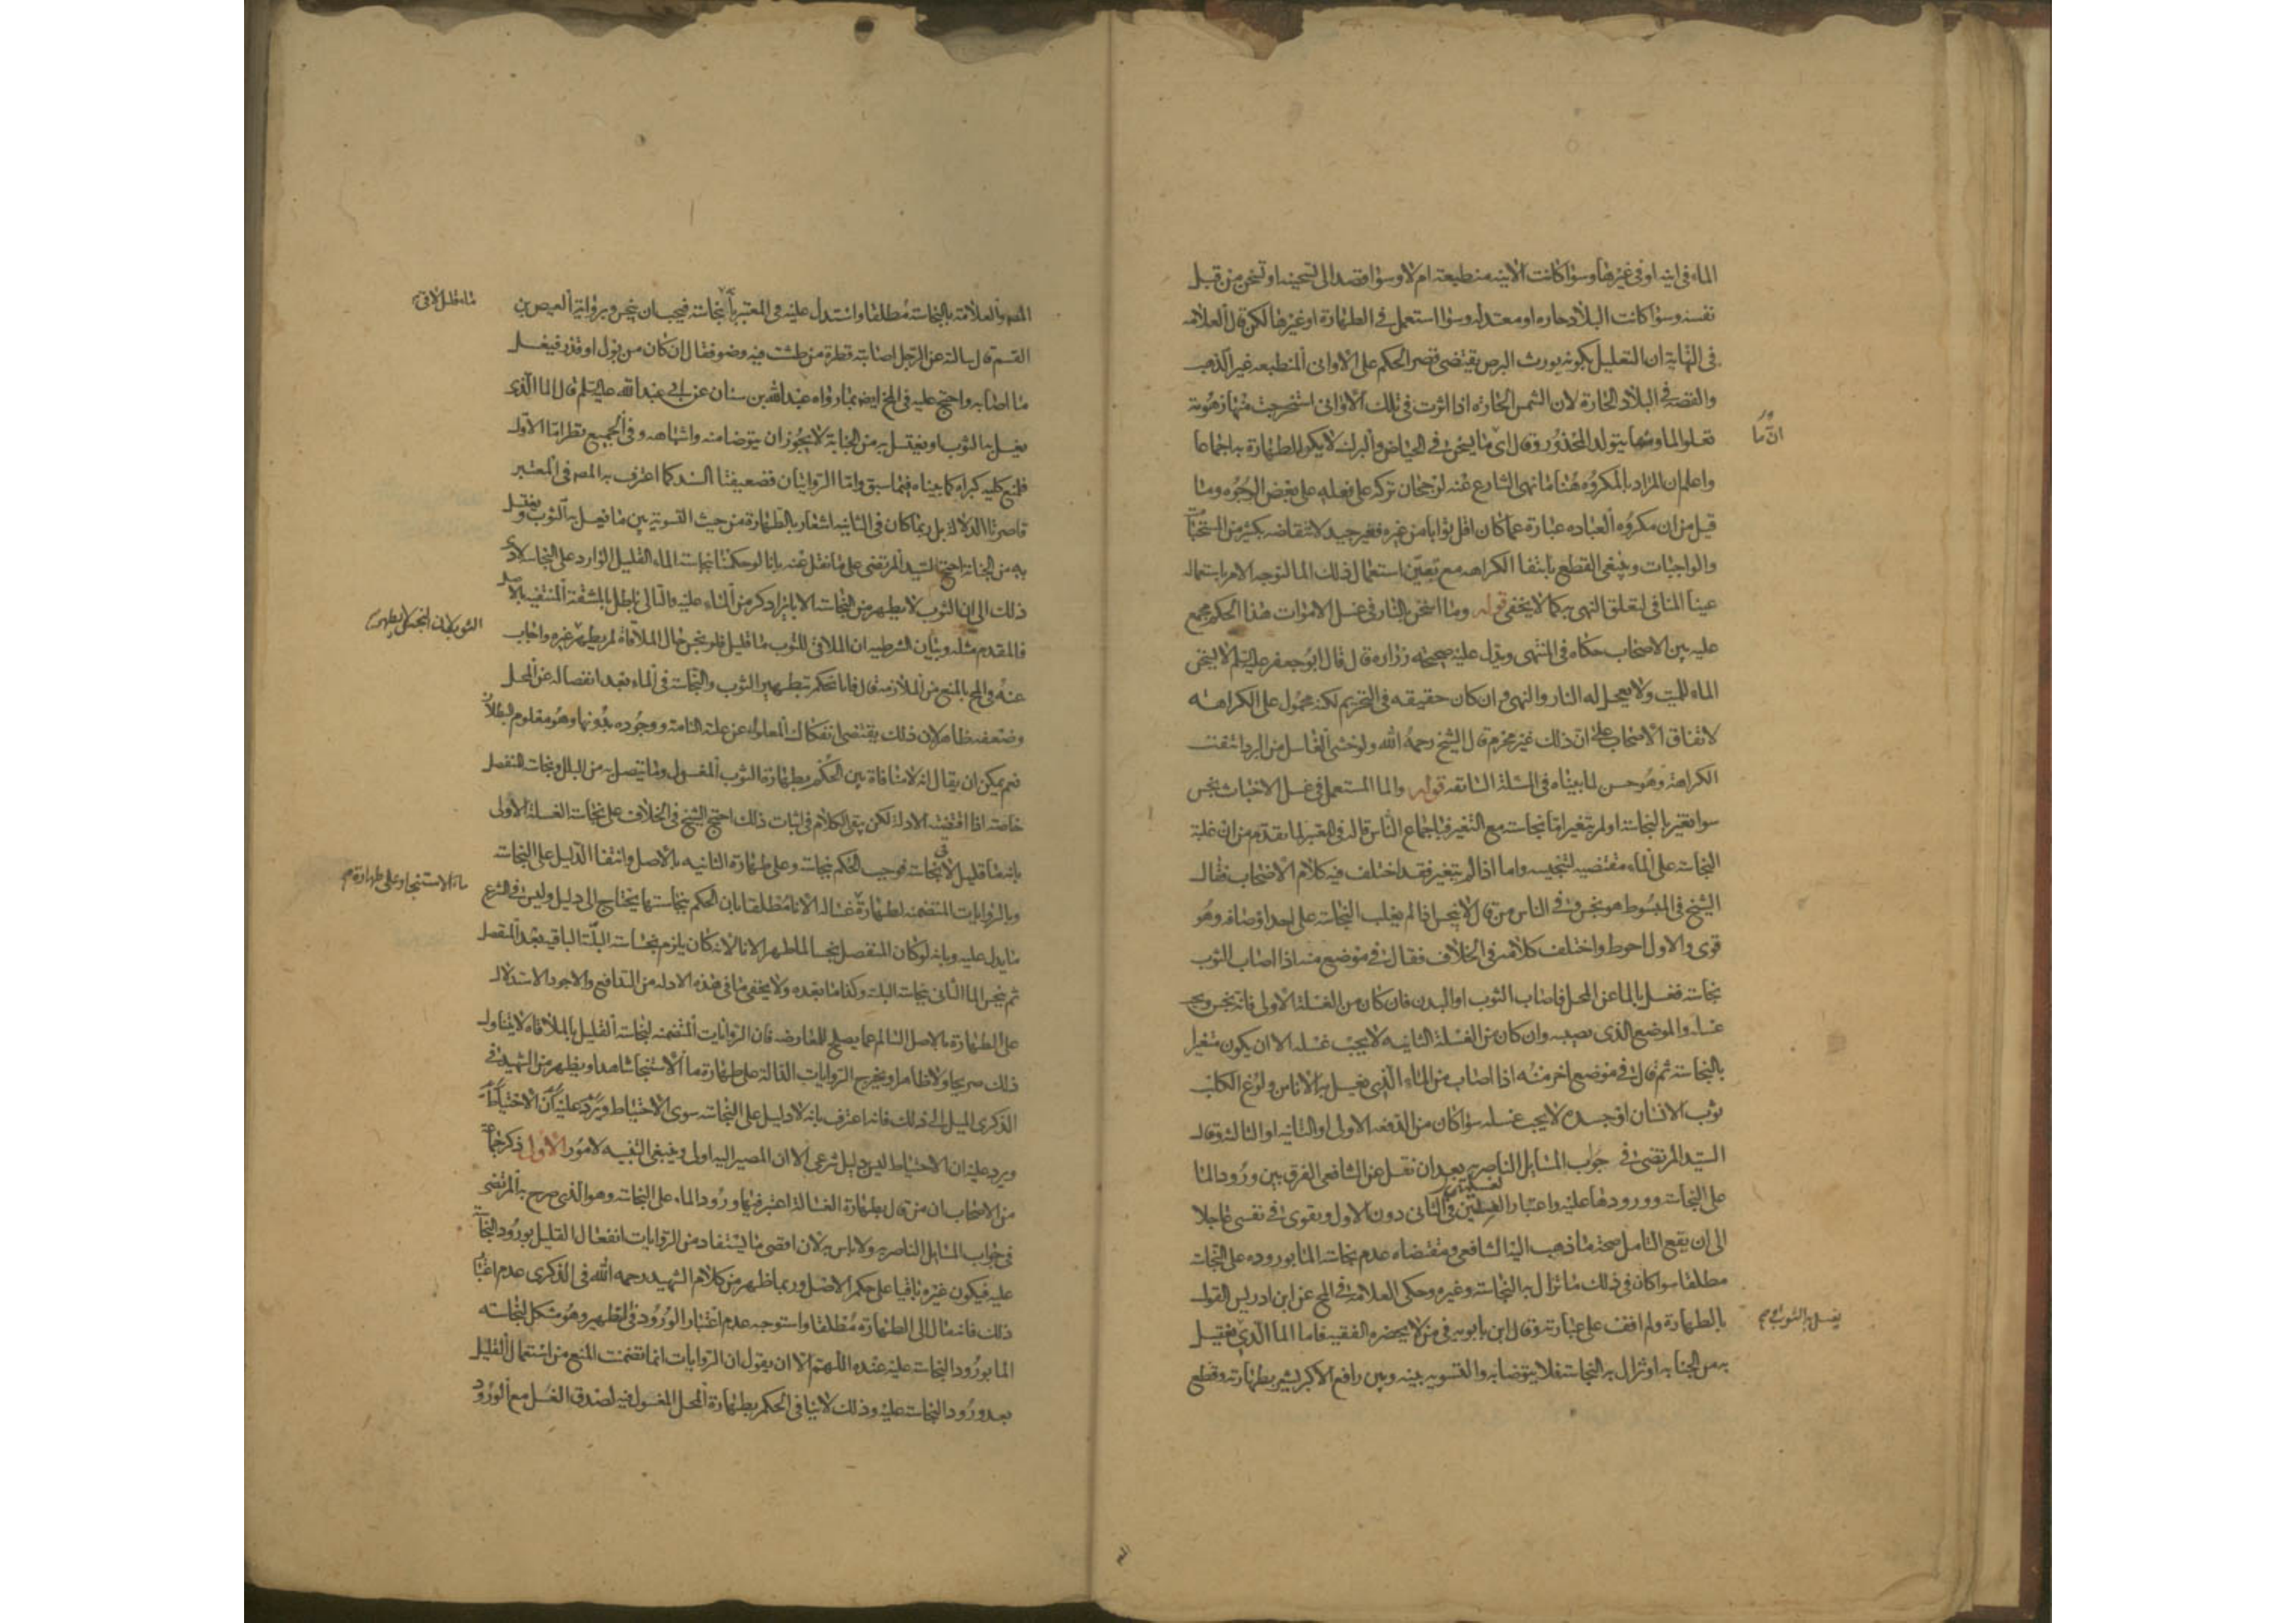 الماء فى انيه او فى غيرها وسوا كانت الانيه منطبعة ام لا وسوا قصد الى تسخينه او تسخن من قبل
نفسه وسوا كانت البلاد حاره او معتدله وسوا استعمل فى الطهارة او غيرها لكن قال العلامه
فى النهاية ان التعليل بكونه يورث البرص يقتضى قصر الحكم على الاوانى المنطبعه غير الذهب
والفضه فى البلاد الحارة لان الشمس الحاره اذا اثرت فى تلك الاوانى استخرجت منها زهومة
تعلو الما ومنها يتولد المحذور وقال اى ما يسخن فى الحياض والبرك لا يكره الطهارة به اجماعا
انّ ما
واعلم ان المراد بالمكروه هنا ما نهى الشارع عنه لرجحان تركه على فعله على بعض الوجوه وما
قيل من ان مكروه العباده عبارة عما كان اقل ثوابا من غيره فغير جيد لانتقاضه بكثير من المستحبات
والواجبات وينبغى القطع بانتفا الكراهه مع تعين استعمال ذلك الما لتوجه الامر باستعماله
عينا المنافى لتعلق النهى به كما لا يخفى قوله وما اسخن بالنار فى غسل الاموات هذا الحكم مجمع
عليه بين الاصحاب حكاه فى المنتهى ويدل عليه صحيحه زراره قال قال ابو جعفر عليه السلم لا يسخن
الماء للميت ولا يعجل له النار والنهى وان كان حقيقه فى التحريم لكنه محمول على الكراهه
لاتفاق الاصحاب على ان ذلك غير محرم قال الشيخ رحمه الله ولو خشى الغاسل من البرد انتفت
الكراهة وهو حسن لما بيناه فى المسئلة السابقه قوله والما المستعمل فى غسل الاخباث نجس
سوا تغير بالنجاسة او لم يتغير اما نجاسته مع التغير فباجماع الناس قاله فى المعتبر لما تقدم من ان غلبة
النجاسة على الماء مقتضيه لتنجيسه واما اذا لم يتغير فقد اختلف فيه كلام الاصحاب فقال
الشيخ فى المبسوط هو نجس وفى الناس من قال لا ينجس اذا لم يغلب النجاسة على احد اوصافه وهو
قوى والاول احوط واختلف كلامه فى الخلاف فقال فى موضع منه اذا اصاب الثوب
نجاسة فغسل بالما عن المحل فاصاب الثوب او البدن فان كان من الغسلة الاولى فانه نجس ويجب
غسله والموضع الذى يصيبه وان كان من الغسلة الثانيه لا يجب غسله الا ان يكون متغيرا
بالنجاسة ثم قال فى موضع اخر منه اذا اصاب من الماء الذى يغسل به الانا من ولوغ الكلب
ثوب الانسان او جسده لا يجب غسله سوا كان من الدفعه الاولى او الثانيه او الثالثه وقال
السيد المرتضى فى جواب المسايل الناصريه بعد ان نقل عن الشافعى الفرق بين ورود الما
على النجاسة وورودها عليه واعتبار القلتين فى الثانى دون الاول ويقوى فى نفسى عاجلا
الى ان يقع التامل صحة ما ذهب اليه الشافعى ومقتضاه عدم نجاسة الما بوروده على النجاسة
مطلقا سوا كان فى ذلك ما تزال به النجاسة وغيره وحكى العلامه فى المخ عن ابن ادريس القول
بالطهارة ولم اقف على عبارته وقال ابن بابويه فى من لا يحضره الفقيه فاما الما الذى يغتسل
يغسل به الثوب او
به من الجنابه او تزال به النجاسة فلا يتوضا به والتسويه بينه وبين رافع الاكبر يشير بطهارته وقطع
المصر والعلامة بالنجاسة مطلقا واستدل عليه فى المعتبر بان نجاسة فيجب ان ينجس وبرواية العيص بن
ماء قليل لاقى
القسم قال سالته عن الرجل اصابته قطرة من طشت فيه وضو فقال ان كان من بول او قذر فيغسل
ما اصابه واحتج عليه فى المخ ايضا بما رواه عبد الله بن سنان عن ابى عبد الله عليه السلم قال الما الذى
يغسل به الثوب او يغتسل به من الجنابة لا يجوز ان يتوضا منه واشباهه وفى الجميع نظر اما الاول
فلمنع كليه كبراه كما بيناه فيما سبق واما الروايتان فضعيفتا السند كما اعترف به المصر فى المعتبر
قاصرتا الدلالة بل ربما كان فى الثانيه اشعار بالطهارة من حيث التسوية بين ما يغسل به الثوب ويغتسل
به من الجنابة احتج السيد المرتضى على ما نقل عنه بانا لو حكمنا بنجاسة الماء القليل الوارد على النجاسه لادى
ذلك الى ان الثوب لا يطهر من النجاسة الا بايراد كر من الماء عليه والتالى باطل بالمشقة المنتفيه بالاصل
فالمقدم مثله وبيان الشرطيه ان الملاقى للثوب ما قليل فلو نجس حال الملاقاة لم يطهر غيره واجاب
الثوب لان النجس لا يطهر
عنه فى المخ بالمنع من الملازمة قال فانا نحكم بتطهير الثوب والنجاسة فى الماء بعد انفصاله عن المحل
وضعفه ظاهر لان ذلك يقتضى انفكاك المعلول عن علته التامة ووجوده بدونها وهو معلوم البطلان
نعم يمكن ان يقال انه لا منافاة بين الحكم بطهارة الثوب المغسول وما يتصل به من البلل ونجاسة المنفصل
خاصة اذا اقتضته الادلة لكن يبقى الكلام فى اثبات ذلك احتج الشيخ فى الخلاف على نجاسة الغسلة الاولى
بانه ما قليل لاقى نجاسة فوجب الحكم بنجاسته وعلى طهارة الثانيه بالاصل وانتفا الدليل على النجاسة
وبالروايات المتضمنه لطهارة غسالة الانا مطلقا بان الحكم بنجاستها يحتاج الى دليل وليس فى الشرع
ما الاستنجا وعلى طهارة
ما يدل عليه وبانه لو كان المنفصل نجسا لما طهر الانا لانه كان يلزم نجاسة البلة الباقيه بعد المنفصل
ثم ينجس الما الثانى بنجاسة البلة وكذا ما بعده ولا يخفى ما فى هذه الادله من التدافع والاجود الاستدلال
على الطهارة بالاصل السالم عما يصلح للمعارضه فان الروايات المتضمنه لنجاسة القليل بالملاقاه لا يتناول
ذلك صريحا ولا ظاهرا ويخرج الروايات الدالة على طهارة ما الاستنجا شاهدا ويظهر من الشهيد فى
الذكرى الميل الى ذلك فانه اعترف بانه لا دليل على النجاسة سوى الاحتياط ويرد عليه ان الاحتياط
ويرد عليه ان الاحتياط ليس دليل شرعى الا ان المصير اليه اولى وينبغى التنبيه لامور الاول ذكر جماعة
من الاصحاب ان من قال بطهارة الغسالة اعتبر فيها ورود الماء على النجاسة وهو الذى صرح به المرتضى
فى جواب المسايل الناصريه ولا باس به لان اقصى ما يستفاد من الروايات انفعال القليل بورود النجاسة
عليه فيكون غيره باقيا على حكم الاصل وربما ظهر من كلام الشهيد رحمه الله فى الذكرى عدم اعتبار
ذلك فانه مال الى الطهارة مطلقا واستوجه عدم اعتبار الورود فى التطهير وهو مشكل لنجاسة
الما بورود النجاسة عليه عنده اللهم الا ان يقول ان الروايات انما تضمنت المنع من استعمال القليل
بعد ورود النجاسة عليه وذلك لا ينافى الحكم بطهارة المحل المغسول فيه لصدق الغسل مع الورود